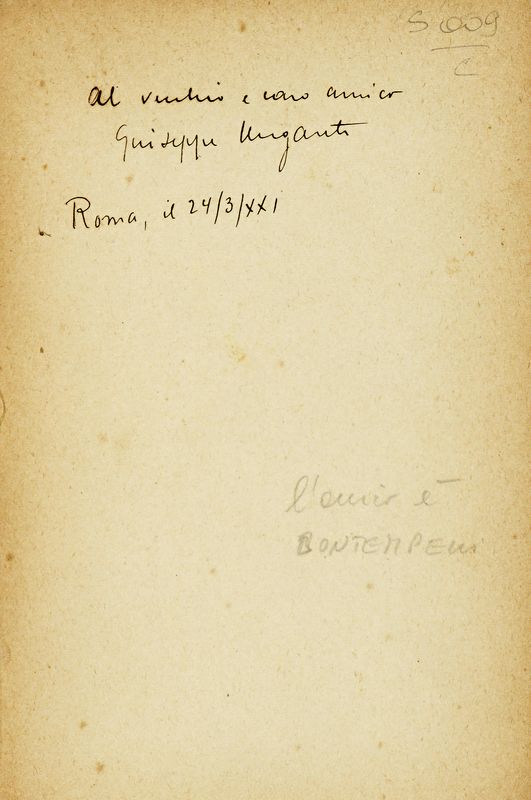 S 009
C
Al vecchio e caro amico
Giuseppe Ungaretti
Roma, il 24/3/XXI
l'amico è
BONTEMPELLI